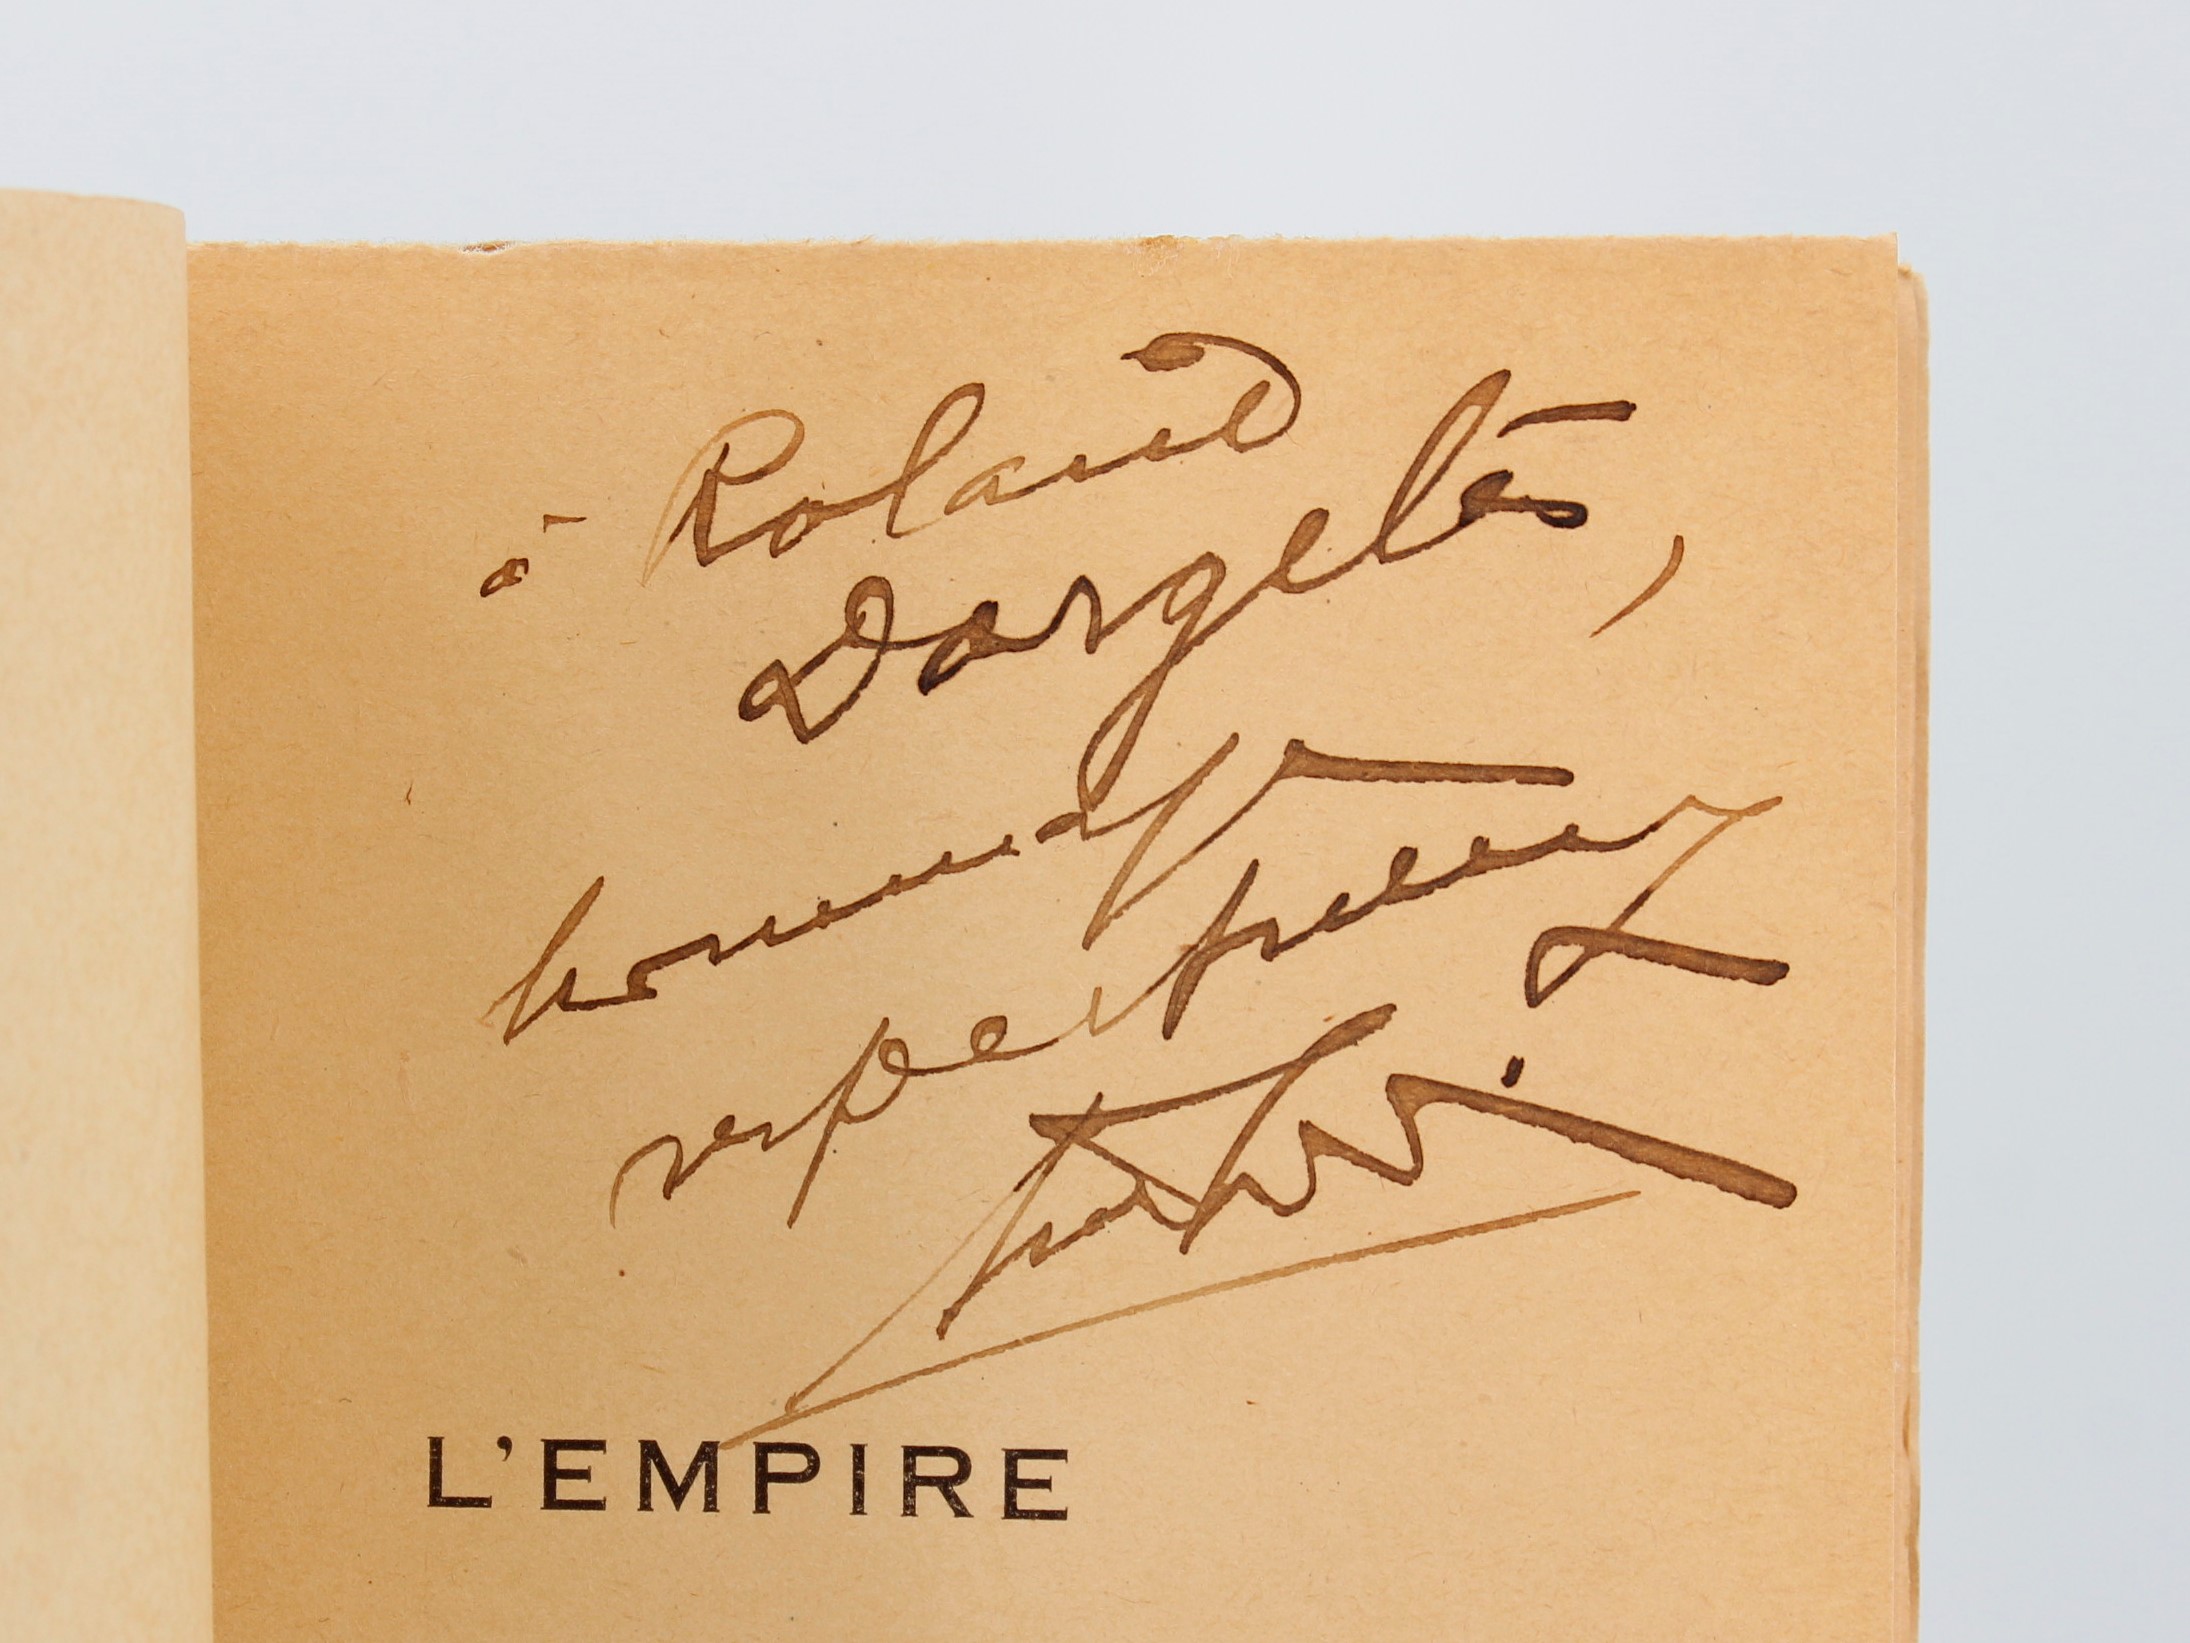 à Roland
Dorgelès,
hommage
respectueux
L'EMPIRE